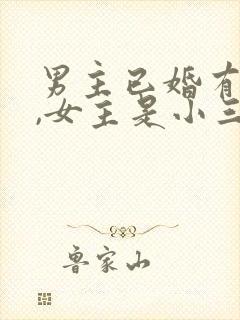 男主已婚有
,女主是小三
鲁家山